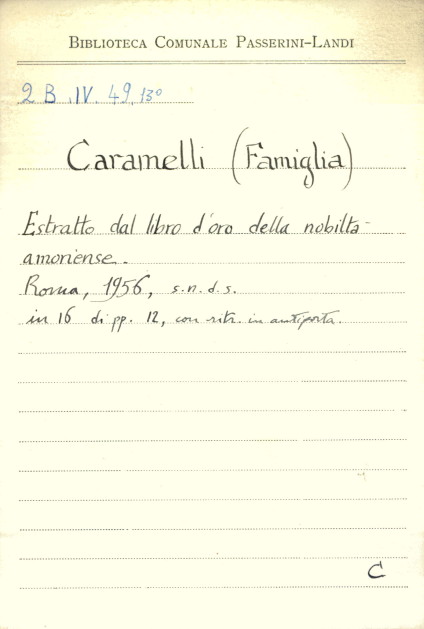 BIBLIOTECA COMUNALE PASSERINI-LANDI
2 B .IV. 49, 13º
Caramelli (Famiglia)
Estratto dal libro d'oro della nobiltà
amoriense.
Roma, 1956, s.n.d.s.
in 16 di pp. 12, con ritr. in antiporta.
C